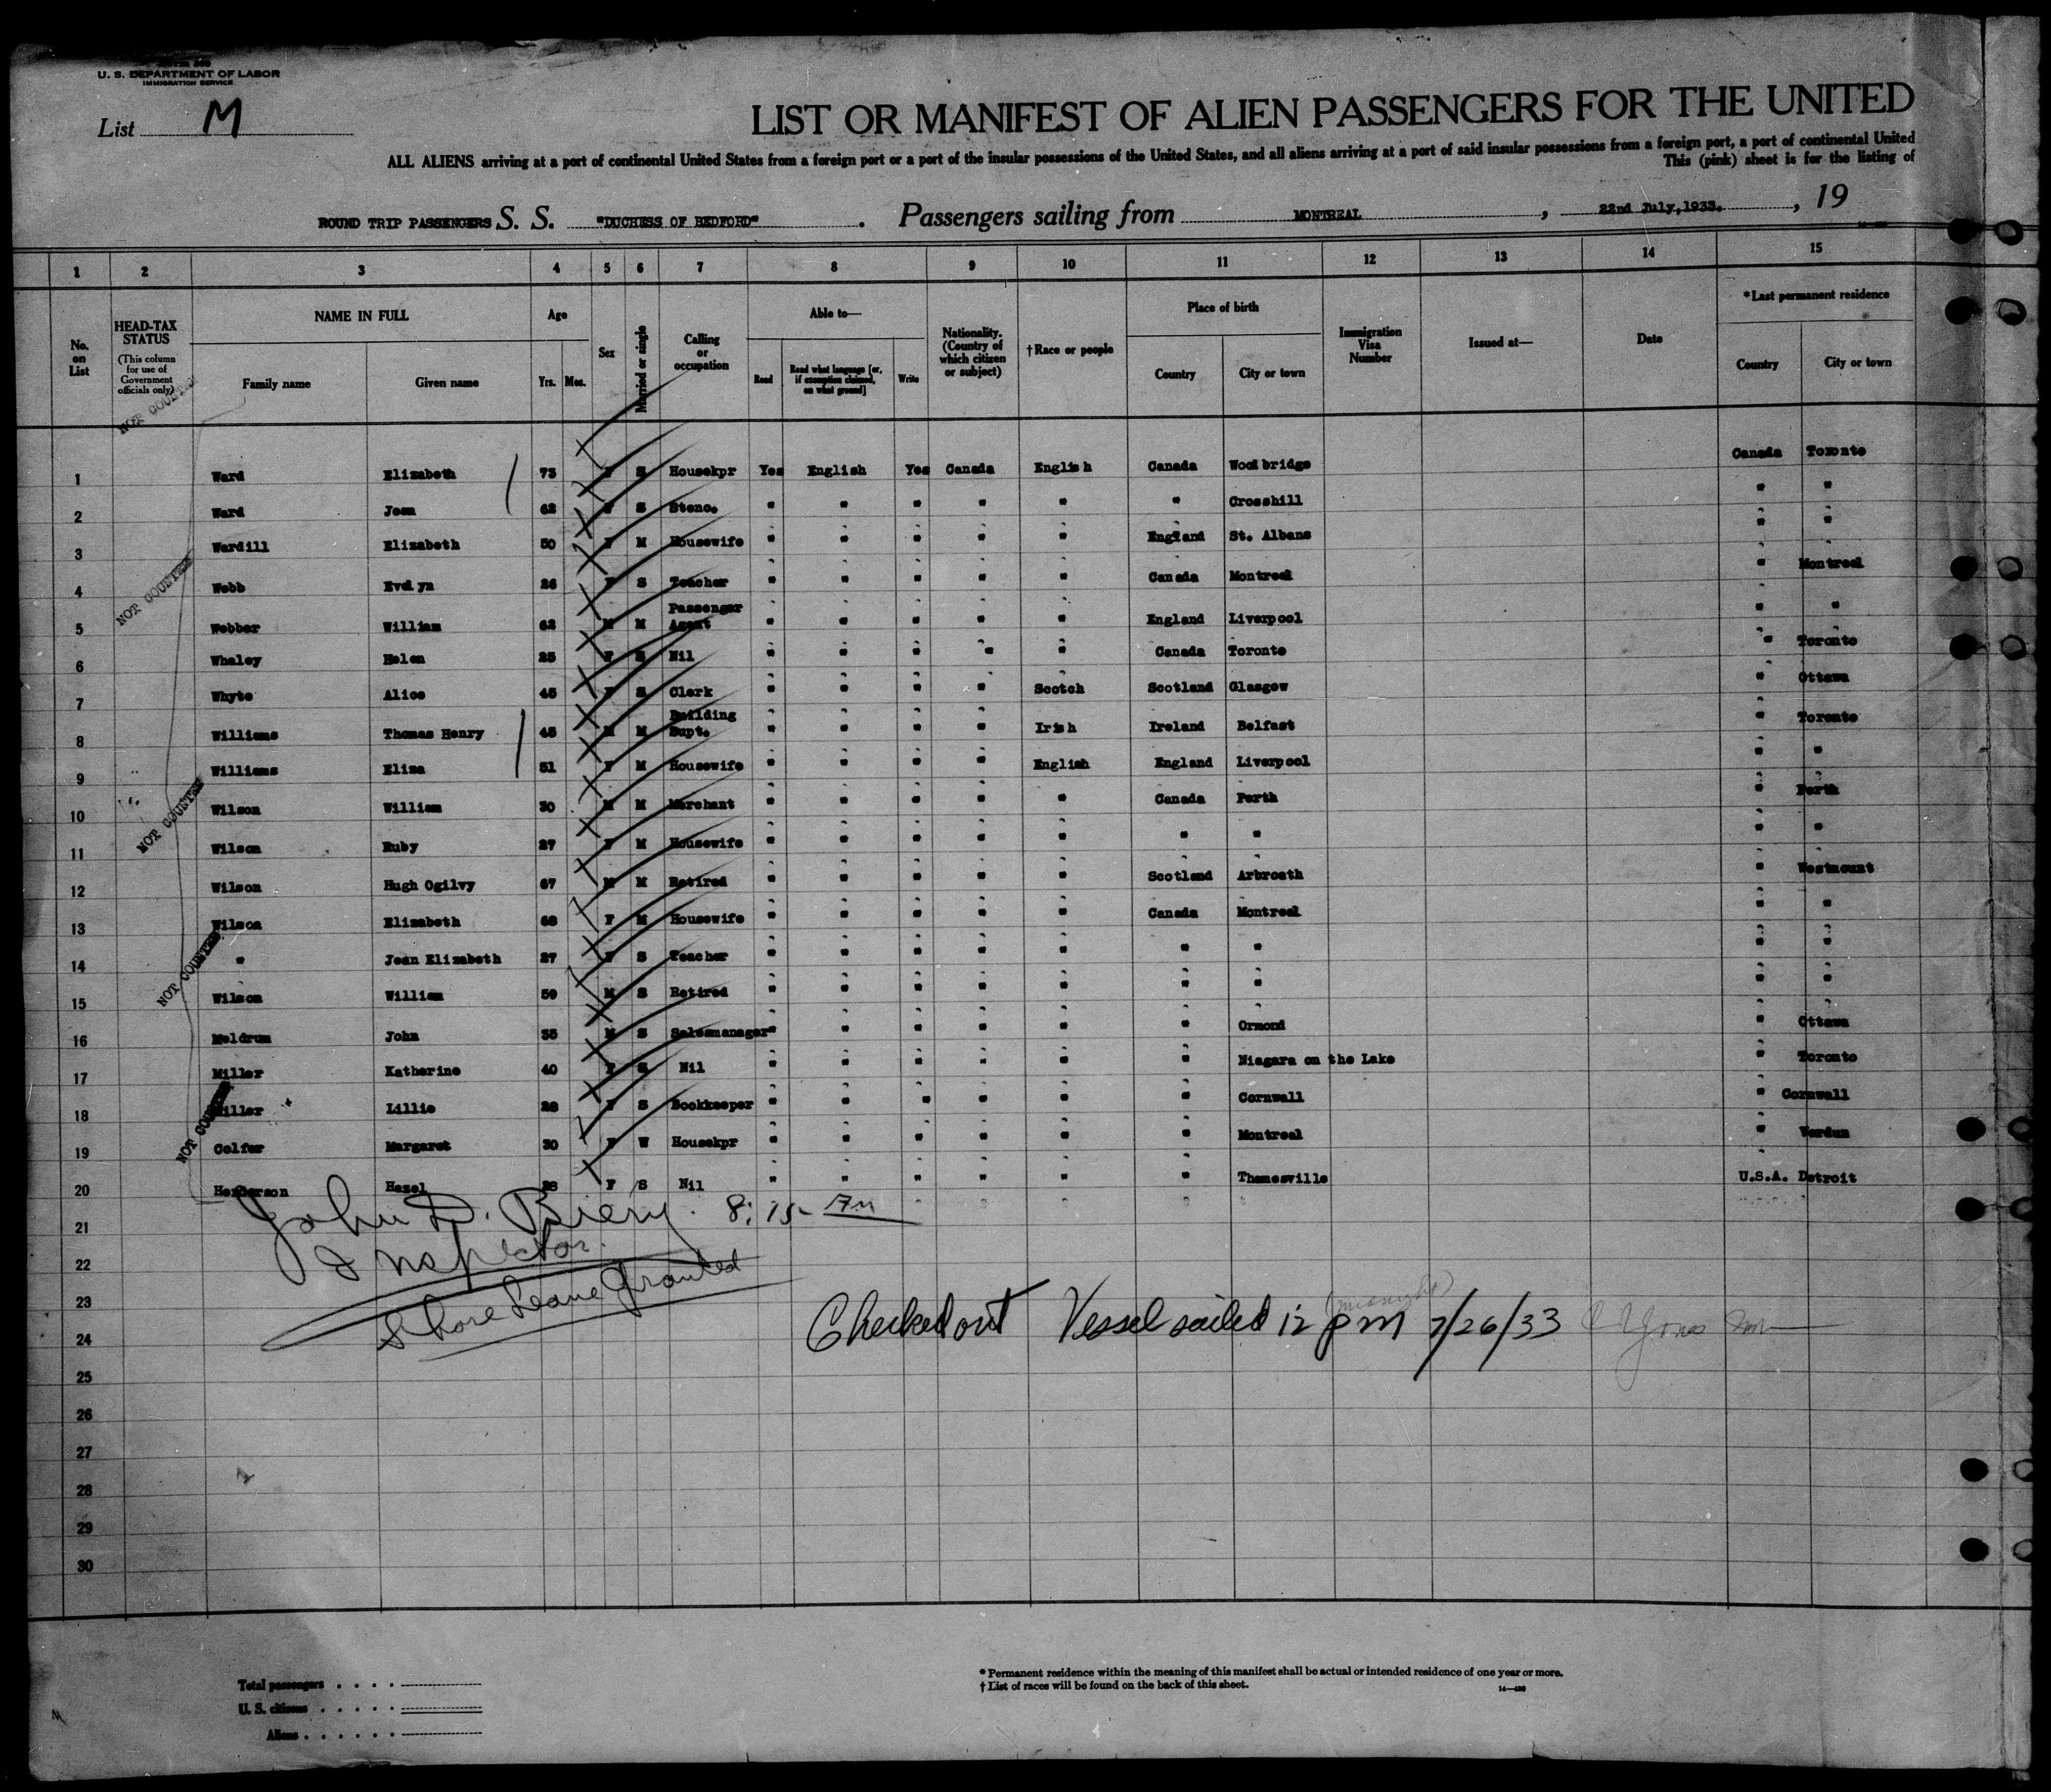 U. S. DEPARTMENT OF LABOR
IMMIGRATION SERVICE
List M
LIST OR MANIFEST OF ALIEN PASSENGERS FOR THE UNITED
ALL ALIENS arriving at a port of continental United States from a foreign port or a port of the insular possessions of the United States, and all aliens arriving at a port of said insular possessions from a foreign port, a port of continental United
This (pink) sheet is for the listing of
ROUND TRIP PASSENGERS S. S. "DUCHESS OF BEDFORD". Passengers sailing from MONTREAL, 22nd July,1933., 19
1 2 3 4 5 6 7 8 9 10 11 12 13 14 15
No. on List
HEAD-TAX STATUS
(This column for use of Government officials only)
NAME IN FULL
Family name Given name
Age
Yrs. Mos.
Sex
Married or single
Calling or occupation
Able to—
Read Read what language [or, if exemption claimed, on what ground] Write
Nationality. (Country of which citizen or subject)
†Race or people
Place of birth
Country City or town
Immigration Visa Number
Issued at—
Date
*Last permanent residence
Country City or town
1 Ward Elizabeth 73 F S Housekpr Yes English Yes Canada English Canada Woodbridge Canada Toronto
2 Ward Jean 62 F S Steno. " " " " " " Crosshill " "
3 Wardill Elizabeth 50 F M Housewife " " " " " England St. Albans " "
4 Webb Evelyn 26 F S Teacher " " " " " Canada Montreal " Montreal
5 Webber William 62 M M Passenger Agent " " " " " England Liverpool " "
6 Whaley Helen 25 F S Nil " " " " " Canada Toronto " Toronto
7 Whyte Alice 45 F S Clerk " " " " Scotch Scotland Glasgow " Ottawa
8 Williams Thomas Henry 45 M M Building Supt. " " " " Irish Ireland Belfast " Toronto
9 Williams Eliza 51 F M Housewife " " " " English England Liverpool " "
10 Wilson William 30 M M Merchant " " " " " Canada Perth " Perth
11 Wilson Ruby 27 F M Housewife " " " " " " " " "
12 Wilson Hugh Ogilvy 67 M M Retired " " " " " Scotland Arbroath " Westmount
13 Wilson Elizabeth 68 F M Housewife " " " " " Canada Montreal " "
14 " Jean Elizabeth 27 F S Teacher " " " " " " " " "
15 Wilson William 59 M S Retired " " " " " " " " "
16 Meldrum John 35 M S Salesmanager " " " " " " Ormond " Ottawa
17 Miller Katherine 40 F S Nil " " " " " " Niagara on the Lake " Toronto
18 Miller Lillie 28 F S Bookkeeper " " " " " " Cornwall " Cornwall
19 Colfer Margaret 30 F W Housekpr " " " " " " Montreal " Verdun
20 Henderson Hazel 28 F S Nil " " " " " " Thamesville U.S.A. Detroit
NOT COUNTED
NOT COUNTED
NOT COUNTED
NOT COUNTED
NOT COUNTED
21
22
23
24
25
26
27
28
29
30
John D. Biery. 8:15 AM
Inspector.
Shore Leave Granted
(midnight)
Checked out Vessel sailed 12 pm 7/26/33
Total passengers
U. S. citizens
Aliens
* Permanent residence within the meaning of this manifest shall be actual or intended residence of one year or more.
† List of races will be found on the back of this sheet.